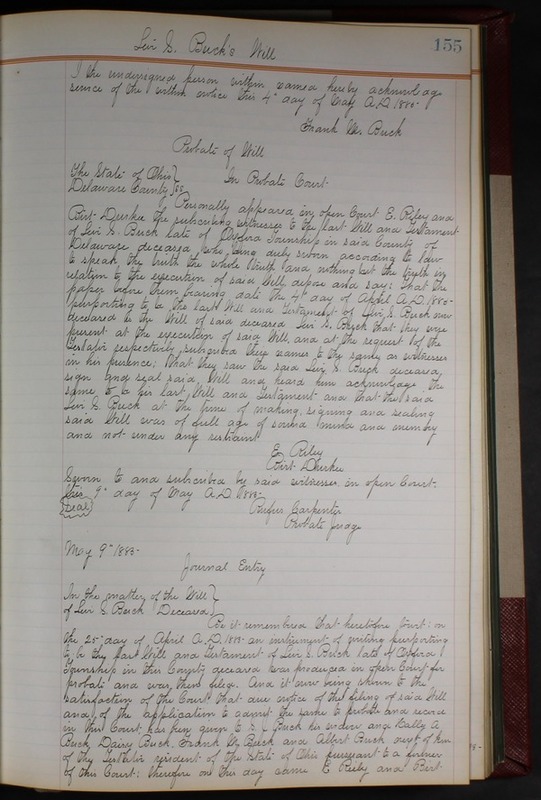 155
Levi S. Buck's Will
I the undersigned person within named hereby acknowledge
service of the within notice this 4" day of May A.D. 188
Frank W. Buck
Probate of Will
The State of Ohio }
Delaware County } SS In Probate Court
Personally appeared in open Court E. Riley and
Birt Durkee the subscribing witnesses to the last Will and Testament
of Levi S. Buck late of Township in said County of
Delaware deceased, who being duly sworn according to law
to speak the truth the whole truth and nothing but the truth in
relation to the execution of said Will depose and say: that the
paper before them bearing date the 4" day of April A.D. 188
purporting to be the last Will and Testament of Levi S. Buck now
declared to the Will of said deceased Levi S. Buck that they were
present at the execution of said Will, and at the request of the
Testator respectively subscribed their names to the same as witnesses
in his presence; That they saw the said Levi S. Buck deceased,
sign and seal said Will and heard him acknowledge the
same to be his last Will and Testament and that the said
Levi S. Buck at the time of making, signing and sealing
said Will was of full age of sound mind and memory
and not under any restraint
E. Riley
Birt Durkee
Sworn to and subscribed by said witnesses in open Court
this 9" day of May A.D. 188
{Seal} Rufus Carpenter
Probate Judge
May 9" 188
Journal Entry
In the matter of the Will }
of Levi S. Buck Deceased }
Be it remembered that heretofore towit: on
the 25" day of April A.D. 188 an instrument of writing purporting
to be the last Will and Testament of Levi S. Buck late of
Township in this County deceased was produced in open Court for
probate and was then filed. And it now being shown to the
satisfaction of the Court that due notice of the filing of said Will
and of the application to admit the same to probate and record
in this Court has been given to Buck his widow and A.
Buck, Daisy Buck, Frank W. Buck and Albert Buck next of kin
of the Testator resident of the State of Ohio pursuant to a former
of this Court: therefore on this day came E Riley and Birt